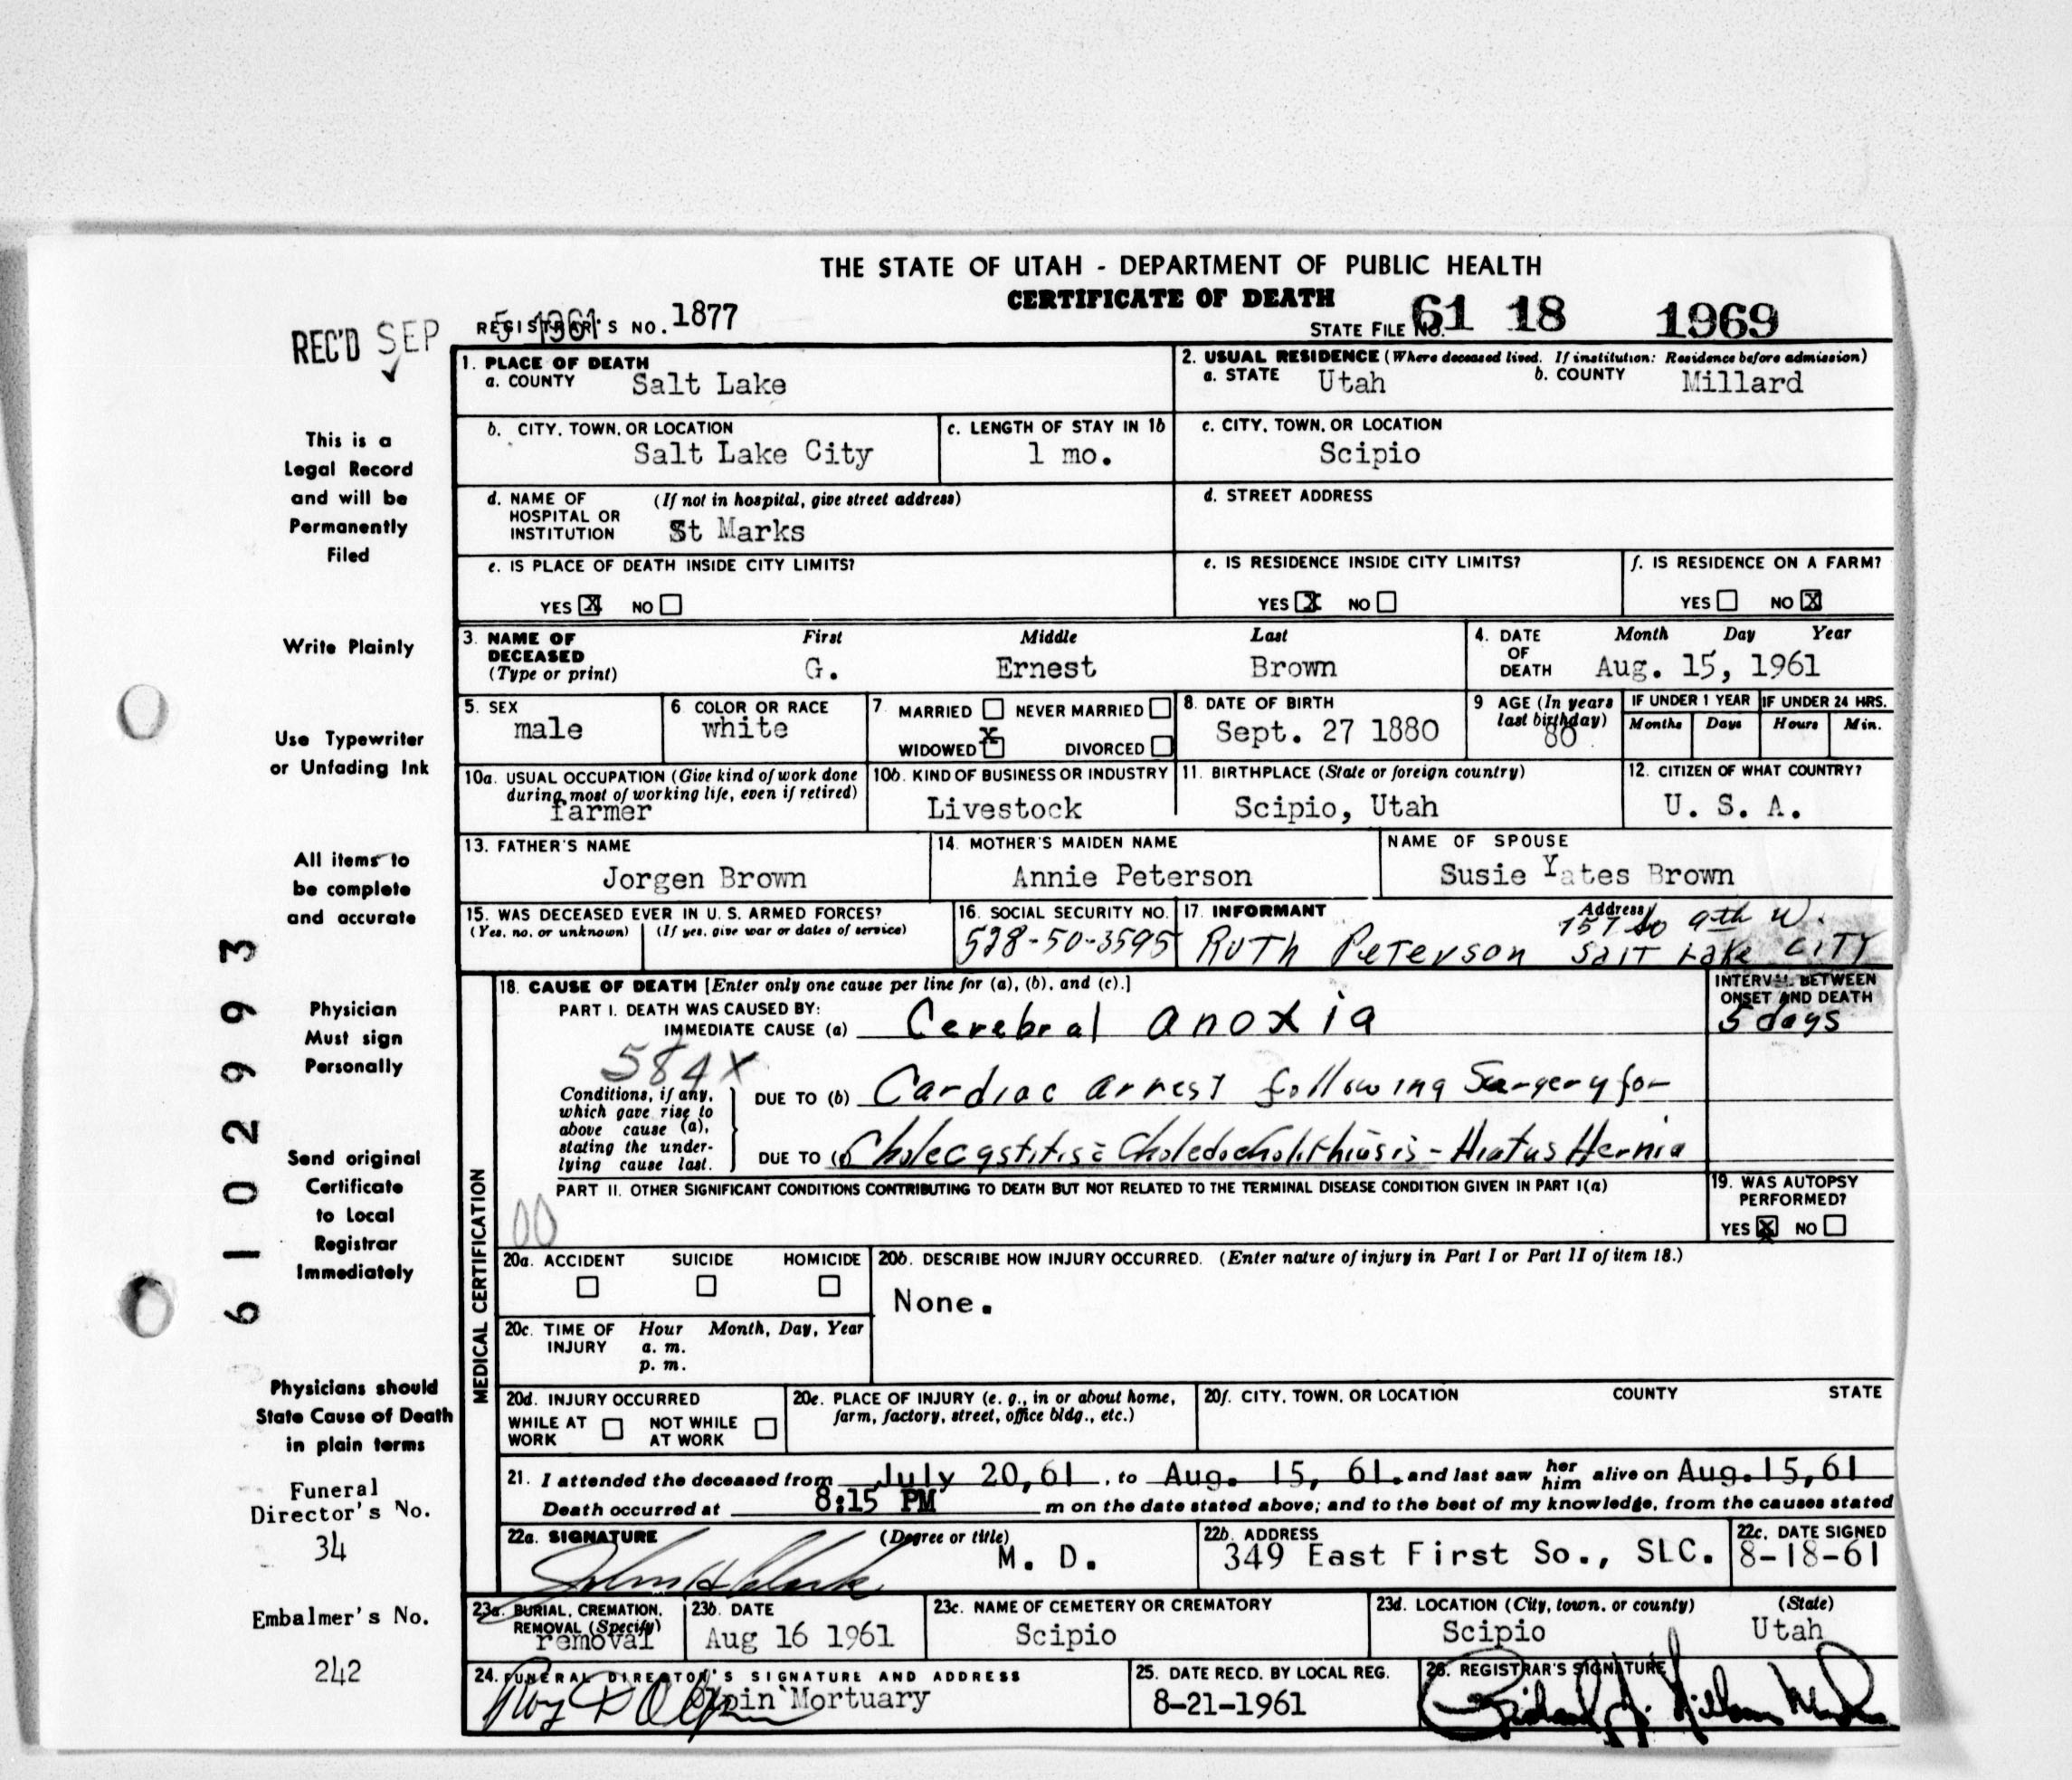 THE STATE OF UTAH - DEPARTMENT OF PUBLIC HEALTH
CERTIFICATE OF DEATH
REC'D SEP 5 1961
REGISTRAR'S NO. 1877
STATE FILE NO. 61 18 1969
This is a
Legal Record
and will be
Permanently
Filed
Write Plainly
Use Typewriter
or Unfading Ink
All items to
be complete
and accurate
Physician
Must sign
Personally
Send original
Certificate
to Local
Registrar
Immediately
Physicians should
State Cause of Death
in plain terms
Funeral
Director's No.
34
Embalmer's No.
242
6102993
1. PLACE OF DEATH
a. COUNTY Salt Lake
2. USUAL RESIDENCE (Where deceased lived. If institution: Residence before admission)
a. STATE Utah b. COUNTY Millard
b. CITY, TOWN, OR LOCATION
Salt Lake City
c. LENGTH OF STAY IN 1b
1 mo.
c. CITY, TOWN, OR LOCATION
Scipio
d. NAME OF HOSPITAL OR INSTITUTION (If not in hospital, give street address)
St Marks
d. STREET ADDRESS
e. IS PLACE OF DEATH INSIDE CITY LIMITS?
YES X NO
e. IS RESIDENCE INSIDE CITY LIMITS?
YES X NO
f. IS RESIDENCE ON A FARM?
YES NO X
3. NAME OF DECEASED (Type or print)
First Middle Last
G. Ernest Brown
4. DATE OF DEATH Month Day Year
Aug. 15, 1961
5. SEX
male
6 COLOR OR RACE
white
7 MARRIED NEVER MARRIED
WIDOWED X DIVORCED
8. DATE OF BIRTH
Sept. 27 1880
9 AGE (In years last birthday)
80
IF UNDER 1 YEAR
Months Days
IF UNDER 24 HRS.
Hours Min.
10a. USUAL OCCUPATION (Give kind of work done during most of working life, even if retired)
farmer
10b. KIND OF BUSINESS OR INDUSTRY
Livestock
11. BIRTHPLACE (State or foreign country)
Scipio, Utah
12. CITIZEN OF WHAT COUNTRY?
U. S. A.
13. FATHER'S NAME
Jorgen Brown
14. MOTHER'S MAIDEN NAME
Annie Peterson
NAME OF SPOUSE
Susie Yates Brown
15. WAS DECEASED EVER IN U. S. ARMED FORCES?
(Yes, no, or unknown) (If yes, give war or dates of service)
16. SOCIAL SECURITY NO.
528-50-3595
17. INFORMANT Address
Ruth Peterson 157 So 9th W.
Salt Lake City
MEDICAL CERTIFICATION
18. CAUSE OF DEATH [Enter only one cause per line for (a), (b), and (c).]
INTERVAL BETWEEN ONSET AND DEATH
PART I. DEATH WAS CAUSED BY:
IMMEDIATE CAUSE (a) Cerebral anoxia 5 days
584X
Conditions, if any, which gave rise to above cause (a), stating the underlying cause last.
DUE TO (b) Cardiac arrest following Surgery for
DUE TO (c) Cholecystitis c̄ Choledocholithiasis - Hiatus Hernia
PART II. OTHER SIGNIFICANT CONDITIONS CONTRIBUTING TO DEATH BUT NOT RELATED TO THE TERMINAL DISEASE CONDITION GIVEN IN PART I(a)
00
19. WAS AUTOPSY PERFORMED?
YES X NO
20a. ACCIDENT SUICIDE HOMICIDE
20b. DESCRIBE HOW INJURY OCCURRED. (Enter nature of injury in Part I or Part II of item 18.)
None.
20c. TIME OF INJURY Hour Month, Day, Year
a. m.
p. m.
20d. INJURY OCCURRED
WHILE AT WORK NOT WHILE AT WORK
20e. PLACE OF INJURY (e. g., in or about home, farm, factory, street, office bldg., etc.)
20f. CITY, TOWN, OR LOCATION COUNTY STATE
21. I attended the deceased from July 20,61, to Aug. 15, 61. and last saw her him alive on Aug.15,61
Death occurred at 8:15 PM m on the date stated above; and to the best of my knowledge, from the causes stated
22a. SIGNATURE (Degree or title)
John H Clark M. D.
22b. ADDRESS
349 East First So., SLC.
22c. DATE SIGNED
8-18-61
23a. BURIAL, CREMATION, REMOVAL (Specify)
removal
23b. DATE
Aug 16 1961
23c. NAME OF CEMETERY OR CREMATORY
Scipio
23d. LOCATION (City, town, or county) (State)
Scipio Utah
24. FUNERAL DIRECTOR'S SIGNATURE AND ADDRESS
Olpin Mortuary
25. DATE RECD. BY LOCAL REG.
8-21-1961
26. REGISTRAR'S SIGNATURE